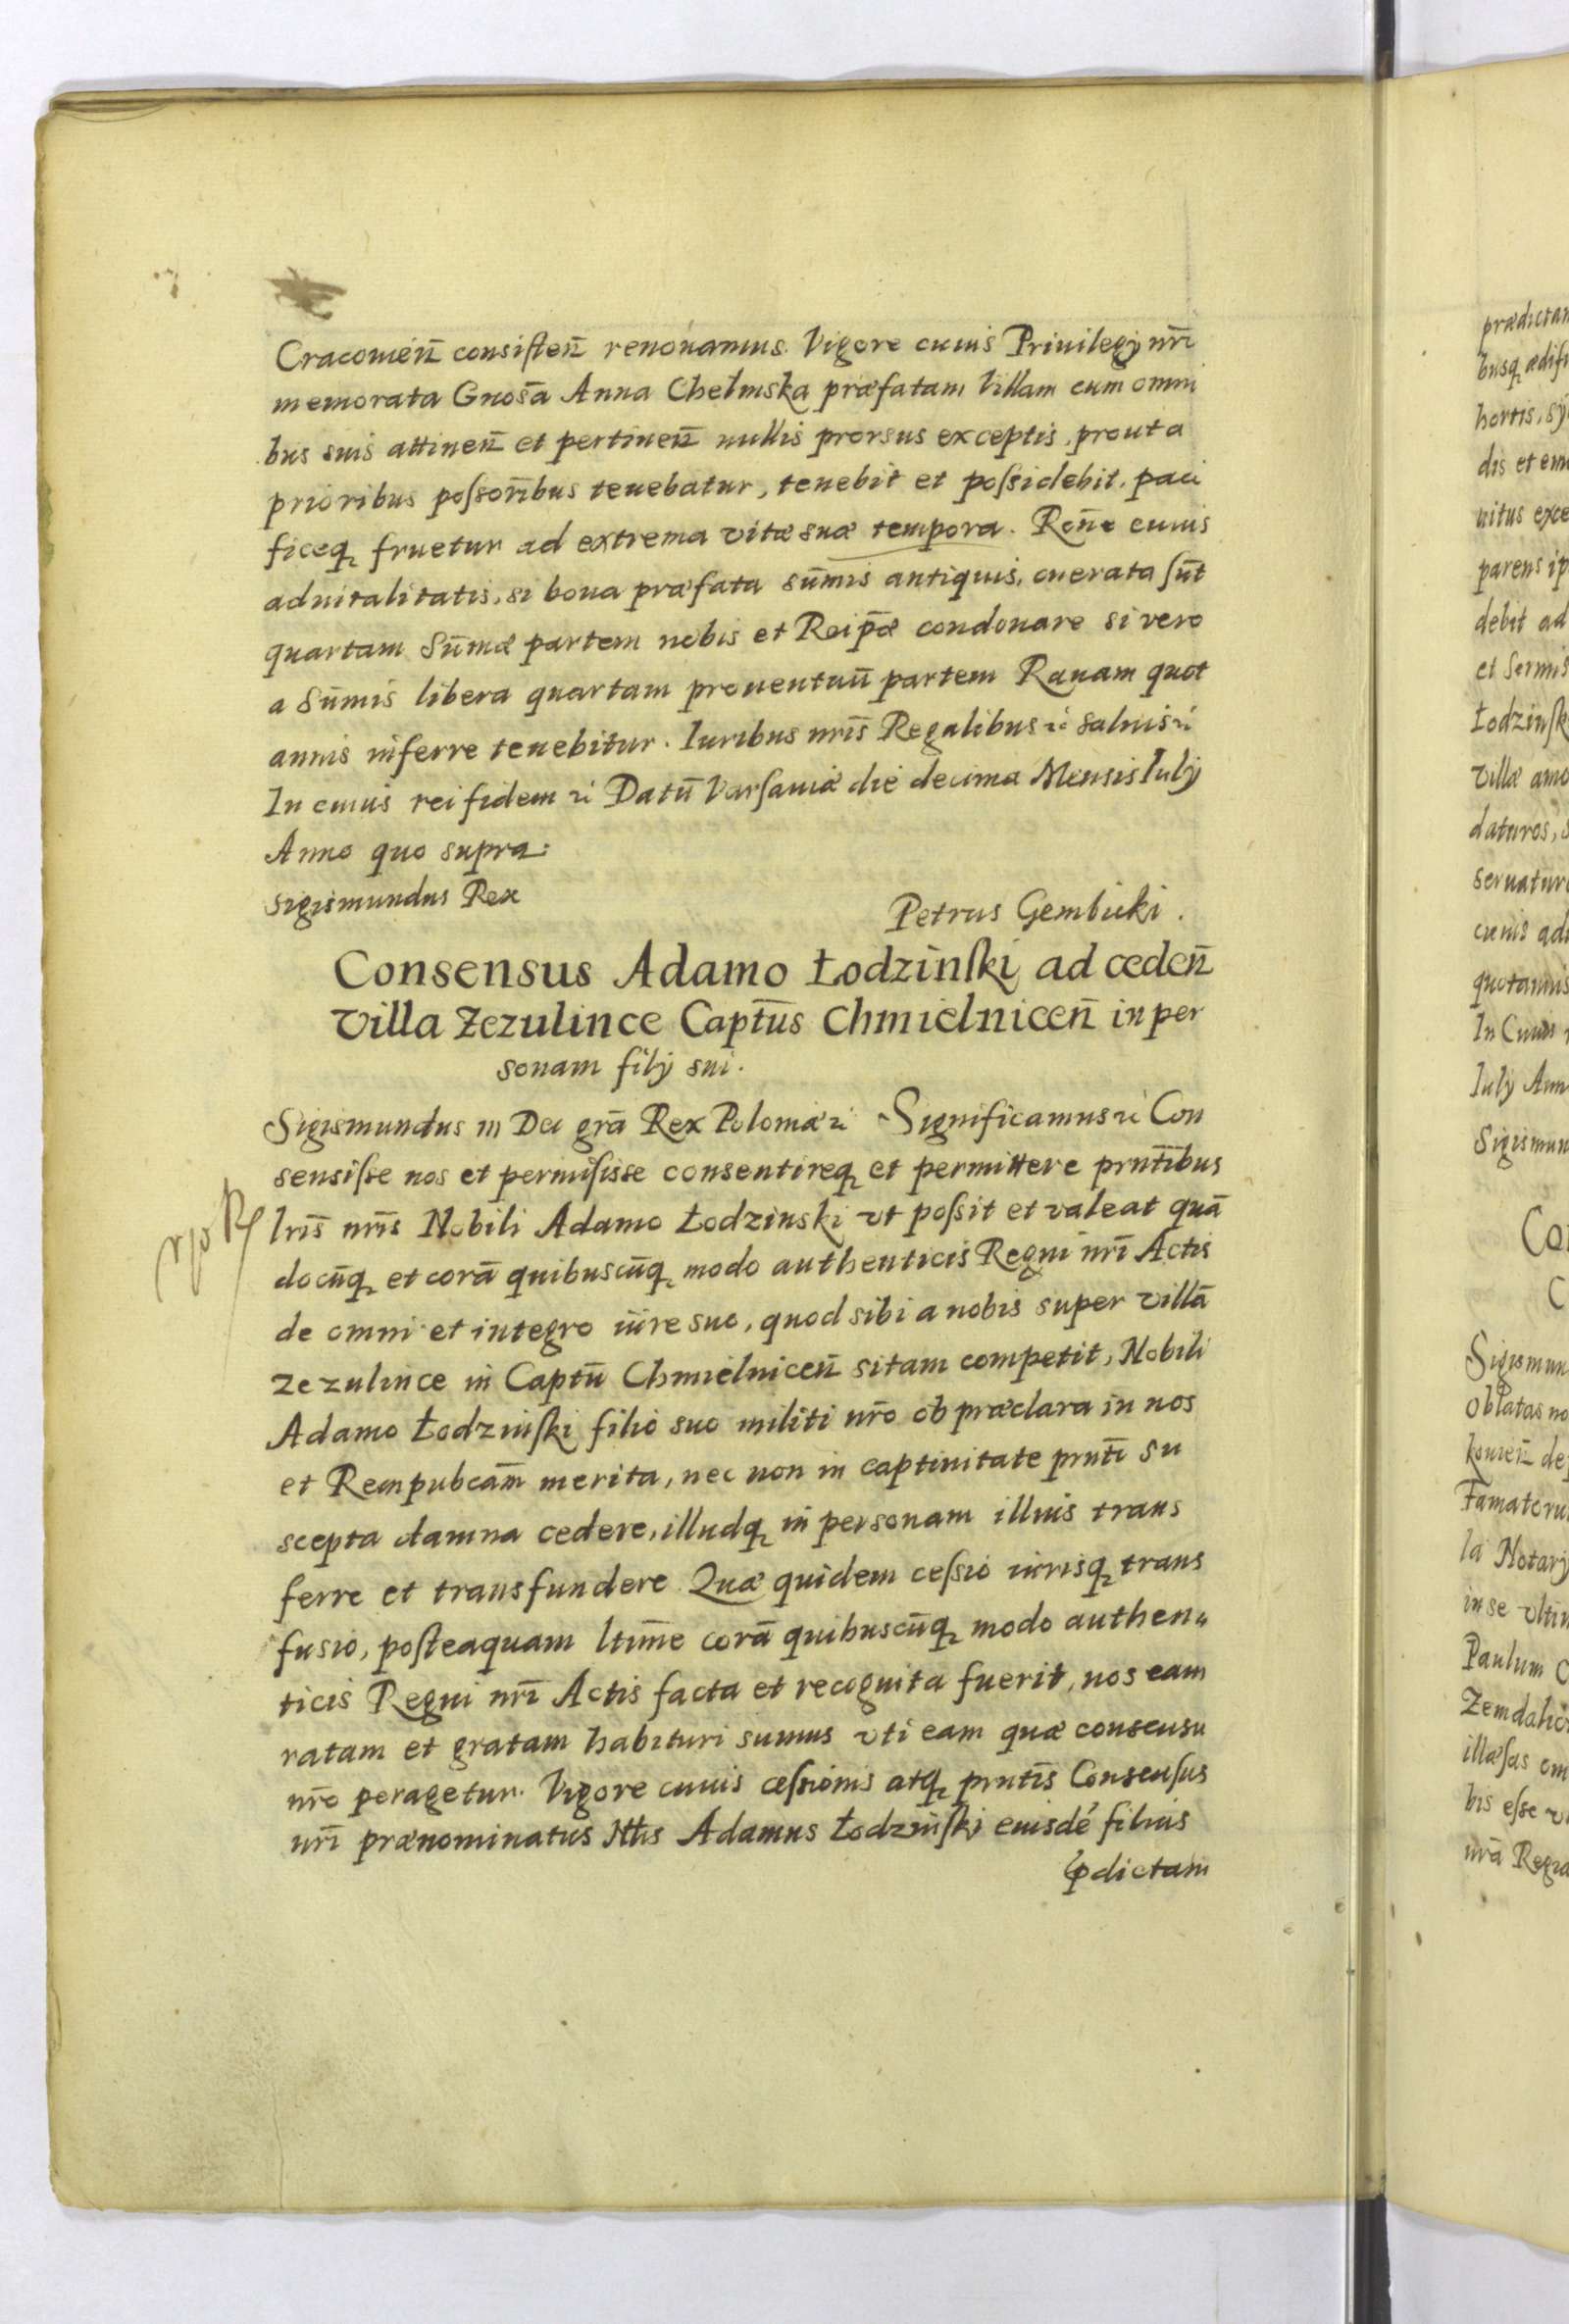 Cracovień consisteń renouamus. Vigore cuius Priuilegÿ nr̄i
memorata Gnosā Anna Chełmska præfatam Villam cum omni
bus suis attineń et pertineń nullis prorsus exceptis, prout a
prioribus possorībus tenebatur, tenebit et possidebit, paci
ficeq̨ fruetur ad extrema vitæ suæ tempora. Rōne cuius
aduitalitatis, si bona præfata sūmis antiquis, onerata sūt
quartam Sūmæ partem nobis et Reip̄æ condonare si vero
a Sūmis libera quartam prouentuū partem Rauam quot
annis inferre tenebitur. Iuribus nr̄is Regalibus ꝛc̃ saluis ꝛc̃
In cuius rei fidem ꝛc̃ Datū Varsauiæ die decima Mensis Iulÿ
Anno quo supra.
Sigismundus Rex
Petrus Gembicki.
Consensus Adamo Łodzinski ad cedeń
villa Zezulince Captūs Chmielniceń in per
sonam filÿ sui.
Sigismundus III Dei grā Rex Poloniæ ꝛc̃ Significamus ꝛc̃ Con
sensisse nos et permisisse consentireq̨ et permittere prnt̄ibus
lr̄is nr̄is Nobili Adamo Łodzinski vt possit et valeat quā
docūq̨ et corā quibuscūq̨ modo authenticis Regni nr̄i Actis
de omni et integro iure suo, quod sibi a nobis super villā
Zezulince in Captū Chmielniceń sitam competit, Nobili
Adamo Łodzinski filio suo militi nr̄o ob præclara in nos
et Rempubcām merita, nec non in captiuitate prnt̄i su
scepta damna cedere, illudq̨ in personam illius trans
ferre et transfundere. Quæ quidem cessio iurisq̨ trans
fusio, posteaquam ltim̄e corā quibuscūq̨ modo authen„
ticis Regni nr̄i Actis facta et recognita fuerit, nos eam
ratam et gratam habituri sumus vti eam quæ consensu
nr̄o peragetur. Vigore cuius cessionis atq̨ prnt̄is Consensus
nr̄i prænominatus Nłis Adamus Łodzinski eiusdē filius
p̄dictam
prædictam
busq̨ ædifi
hortis, sy
dis et em
nitus exce
parens ip
debit ad
et Sermis
Łodzinsk
Villæ amo
daturos, s
seruatur
cuius adu
quotannis
In Cuius
Iulÿ Ann
Sigismun
Con
C
Sigismun
oblatas no
konień de
Famatoru
la Notarÿ
in se vltim
Paulum C
Zemdalic
illæsas om
bis esse v
nr̄a Regia